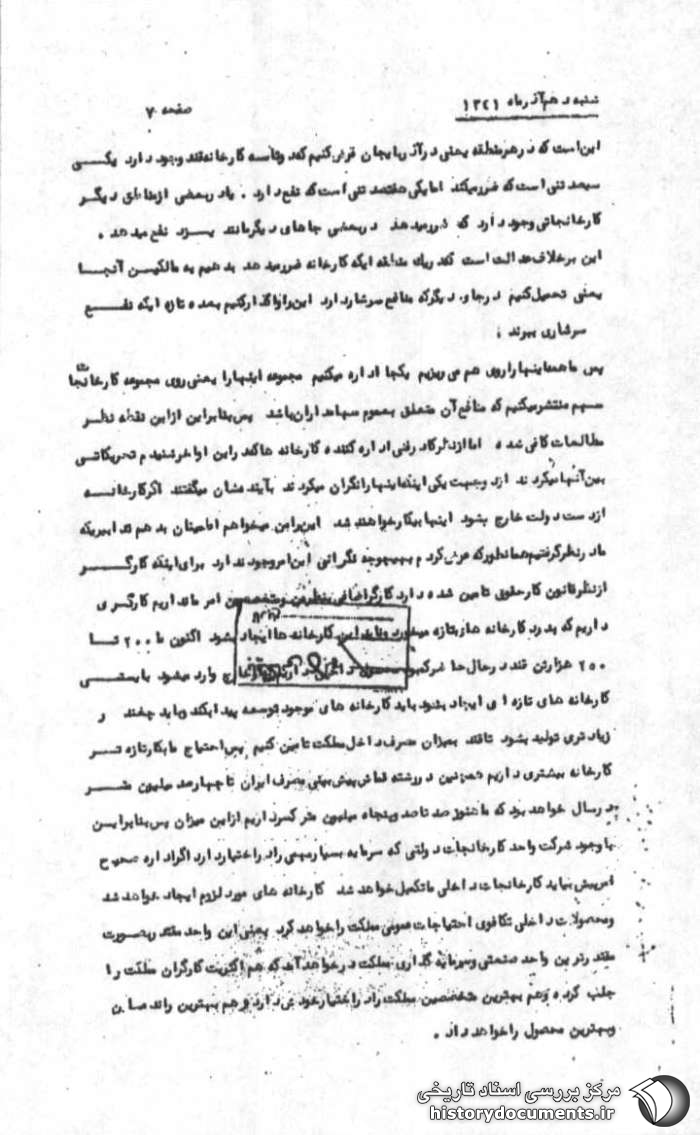 شنبه دهم آذرماه ۱۳۴۱
صفحه ۷
این است که در هر منطقه یعنی در آذربایجان فرض کنیم که دو تا سه کارخانه قند وجود دارد یکی
سیصد تنی است که ضرر میکند اما یکی هفتصد تنی است که نفع دارد . یا در بعضی از مناطق دیگر
کارخانجاتی وجود دارد که ضرر میدهد در بعضی جاهای دیگر مانند یزد نفع میدهد .
این برخلاف عدالت است که در یک منطقه ایکه کارخانه ضرر میدهد بدهیم به مالکین آنجا
یعنی تحمیل کنیم در جاو دیگر که منافع سرشار دارد این را واگذار کنیم بعده تازه ایکه نفع
سرشاری ببرند .
پس ما همه اینها را روی هم می ریزیم یکجا اداره میکنیم مجموعه اینها را یعنی روی مجموعه کارخانجات
سهم منتشر میکنیم که منافع آن متعلق بعموم سهامداران باشد پس بنابراین از این نقطه نظر
مطالعات کافی شده اما از نظر کادر فنی اداره کننده کارخانه ها که در این اواخر شنیدم تحریکاتی
بین آنها میکردند از دو جهت یکی اینکه اینها را نگران میکردند به آینده شان میگفتند اگر کارخانه
از دست دولت خارج بشود اینها بیکار خواهند شد این را من میخواهم اطمینان بدهم تدابیریکه
ما در نظر گرفتیم همانطور که عرض کردم بهیچوجه نگرانی این امر وجود ندارد برای اینکه کارگر
از نظر قانون کار حقوق تامین شده دارد کارگر اضافی متخصصین امر ما نداریم کارگری
داریم که بدرد کارخانه ها باید این کارخانه ها ایجاد بشود اکنون ما ۲۰۰ تا
۲۵۰ هزار تن قند در حال حاضر وارد میشود بایستی
کارخانه های تازه ای ایجاد بشود باید کارخانه های موجود توسعه پیدا بکند و باید چغندر
زیادتری تولید بشود تا قند بمیزان مصرف داخل مملکت تامین کنیم پس احتیاج ما بکار تازه تر
کارخانه بیشتری داریم همچنین در رشته قماش پیش بینی مصرف ایران تا چهارصد میلیون متر
در سال خواهد بود که ما هنوز صد تا صد و پنجاه میلیون متر کسر داریم از این میزان پس بنابراین
با وجود شرکت واحد کارخانجات دولتی که سرمایه بسیار مهمی را در اختیار دارد اگر اداره صحیح
امر پیش بیاید کارخانجات داخلی ما تکمیل خواهد شد کارخانه های مورد لزوم ایجاد خواهد شد
و محصولات داخلی تکافوی احتیاجات عمومی مملکت را خواهد کرد یعنی این واحد مقتدر بصورت
مقتدرترین واحد صنعتی و سرمایه گذاری مملکت در خواهد آمد که هم اکثریت کارگران مملکت را
جلب کرده و هم بهترین متخصصین مملکت را در اختیار خودش دارد و هم بهترین راندمان
و بهترین محصول را خواهد داد .
مرکز بررسی اسناد تاریخی
historydocuments.ir